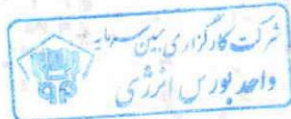 شرکت کارگزاری مبین سرمایه
واحد بورس انرژی